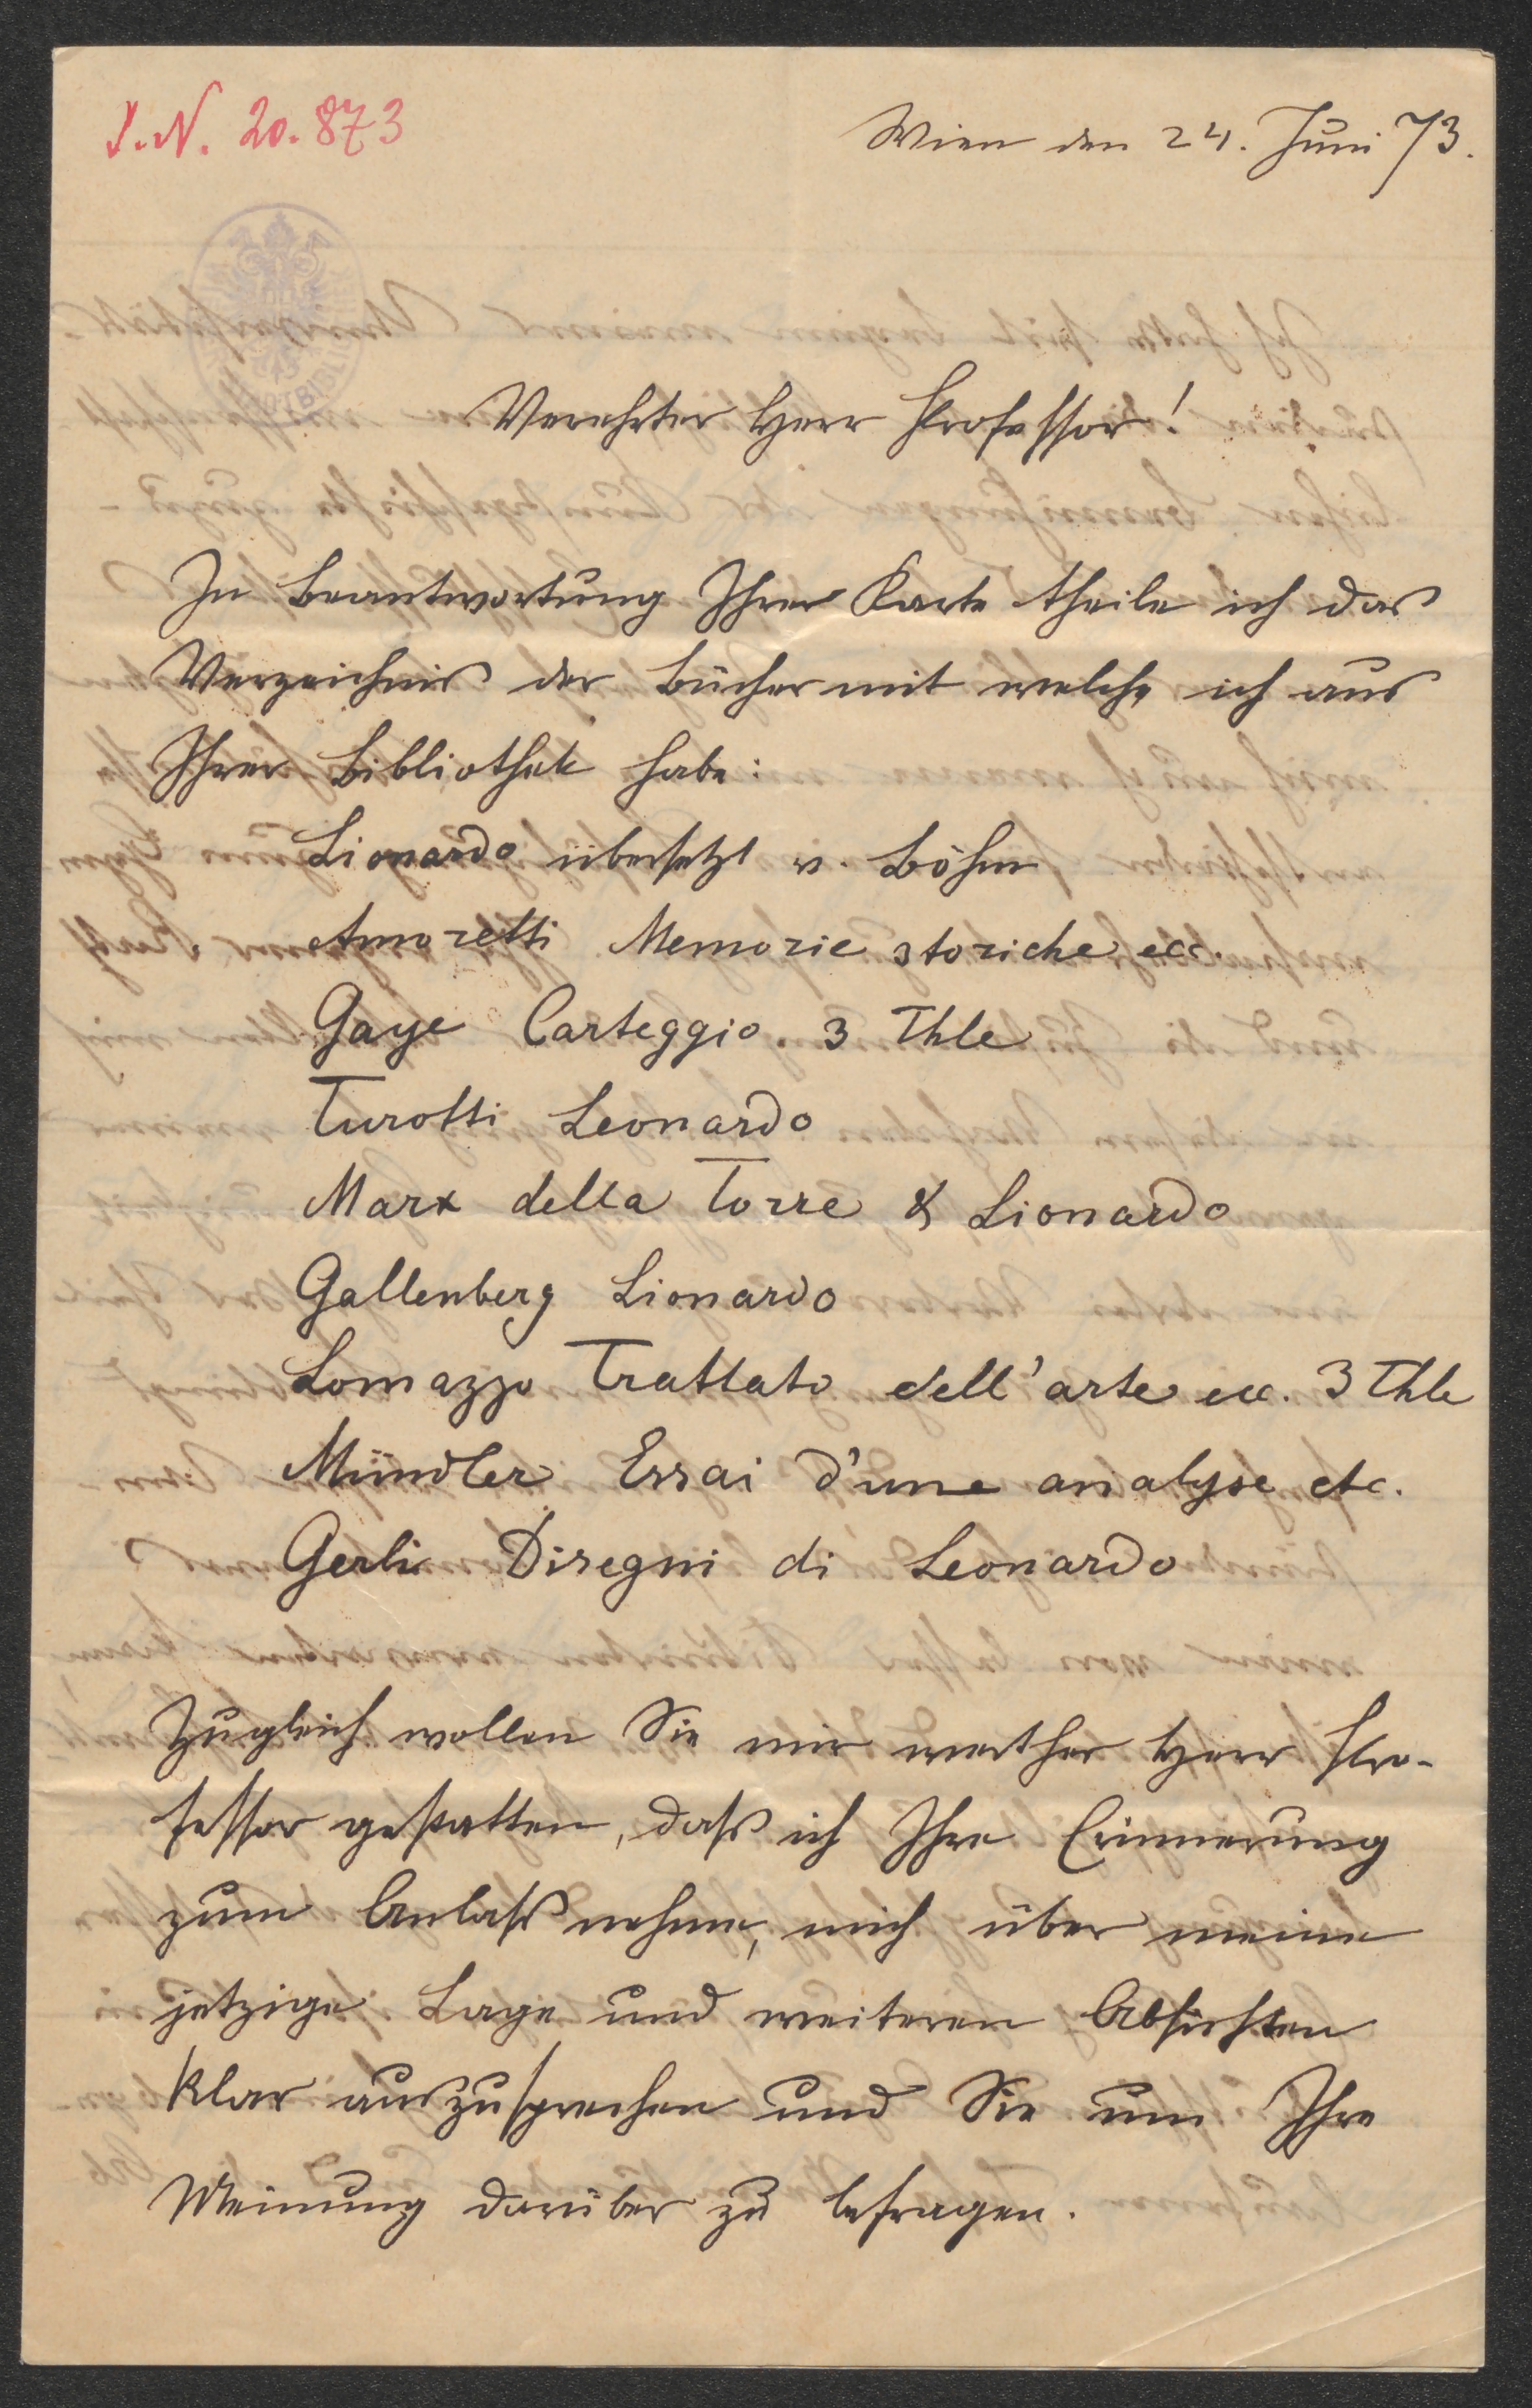 J.N. 20.873
Wien den 24. Juni 73.
Verehrter Herr Professor!
In Beantwortung Ihrer Karte theile ich das
Verzeichnis der Bücher mit welche ich aus
Ihrer Bibliothek habe:
Lionardo übersetzt v. Böhm
Amoretti Memorie storiche ecc.
Gaye Carteggio. 3 Thle
Turotti Leonardo
Marx della Torre & Lionardo
Gallenberg Lionardo
Lomazzo Trattato dell'arte ecc. 3 Thle
Mündler Essai d'une analyse etc.
Gerli Disegni di Leonardo
Zugleich wollen Sie mir werther Herr Pro-
fessor gestatten, daß ich Ihre Erinnerung
zum Anlaß nehme, mich über meine
jetzige Lage und weiteren Absichten
klar auszusprechen und Sie um Ihre
Meinung darüber zu befragen.